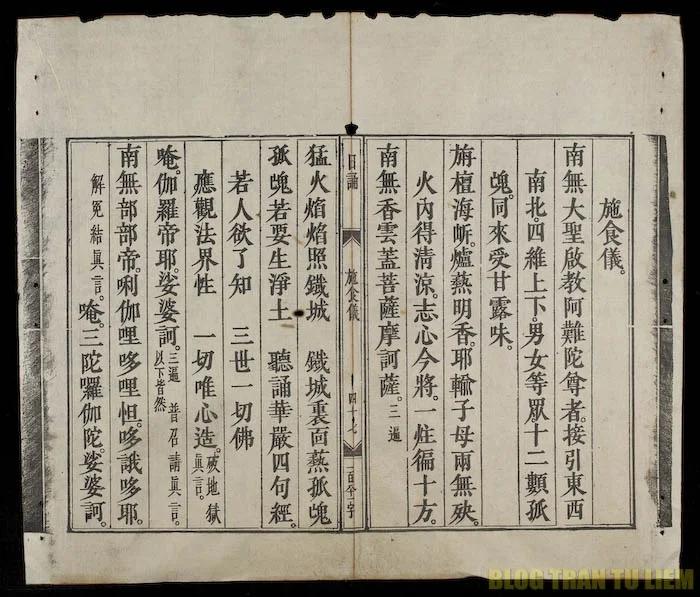 施食儀。
南無大聖啟教阿難陀尊者。接引東西
南北。四維上下。男女等眾。十二類孤
䰟。同來受甘露味。
旃檀海岍。爐爇明香。耶輸子母兩無殃。
火內得清涼。志心今將。一炷徧十方。
南無香雲蓋菩薩摩訶薩。三遍
日誦 施食儀 四十七
猛火焰焰照鐵城 鐵城裏面爇孤䰟
孤䰟若要生淨土 聽誦華嚴四句經。
若人欲了知 三世一切佛
應觀法界性 一切唯心造。破地獄眞言。
唵。伽羅帝耶。娑婆訶。三遍以下皆然 普召請眞言。
南無部部帝。唎伽哩哆哩怛。哆誐哆耶。
解冤結眞言。唵。三陀囉伽陀。娑婆訶。
BLOG TRAN TU LIEM